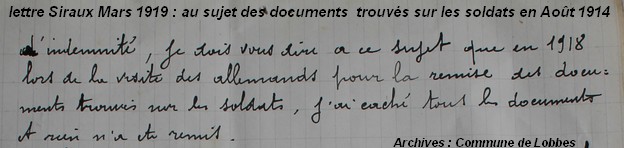 lettre Siraux Mars 1919 : au sujet des documents trouvés sur les soldats en Août 1914
d'indemnité, je dois vous dire a ce sujet que en 1918
lors de la visite des allemands pour la remise des docu-
ments trouvés sur les soldats, j'ai caché tous les documents
et rien n'a été remis.
Archives : Commune de Lobbes